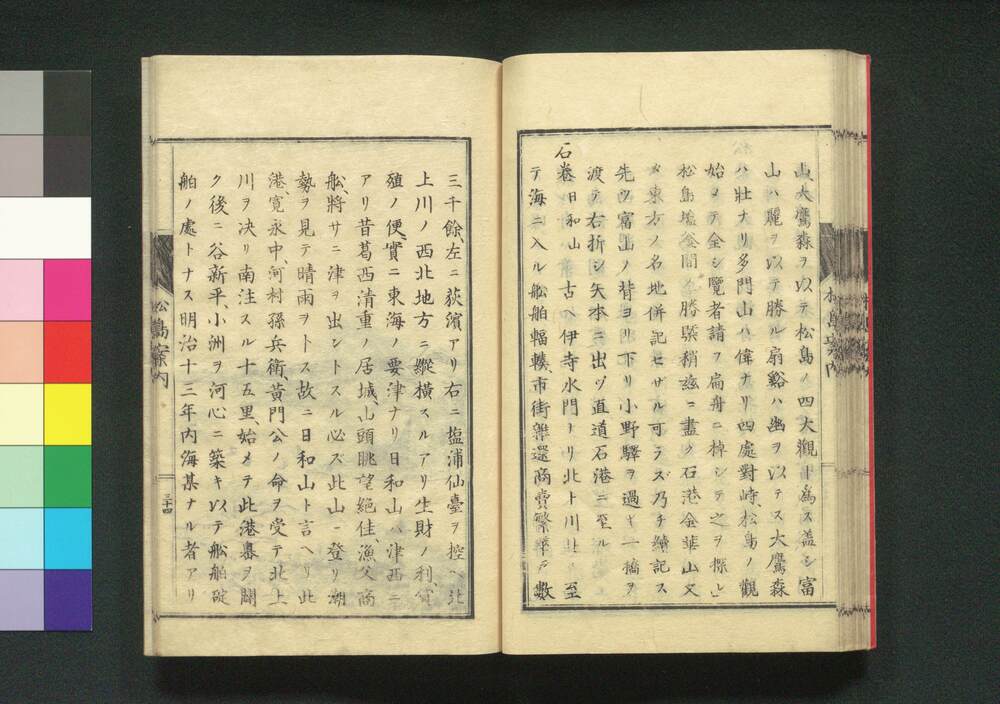 山大鷹森ヲ以テ松島ノ四大觀ト為ス蓋シ富
山ハ麗ヲ以テ勝ル扇谿ハ幽ヲ以テス大鷹森
ハ壮ナリ多門山ハ偉ナリ四處對峙、松島ノ觀
始メテ全シ覽者請フ扁舟ニ棹シテ之ヲ探レ
松島塩釜間ノ勝槩稍玆ニ盡ク石港金華山又
タ東方ノ名地併記セザル可ラズ乃チ續記ス
先ツ富山ノ背ヨリ下リ小野驛ヲ過ギ一橋ヲ
渡テ右折シ矢本ニ出ヅ直道石港ニ至ル
石巻 日和山 古ヘ伊寺水門ナリ北上川此ニ至
テ海ニ入ル舩舶輻輳、市街雜還商賣繁華戸數
三千餘、左ニ荻濱アリ右ニ塩浦仙臺ヲ控ヘ北
上川ノ西北地方ニ縱横スルアリ生財ノ利、貨
殖ノ便、實ニ東海ノ要津ナリ日和山ハ津西ニ
アリ昔葛西清重ノ居城、山頭眺望絶佳、漁父商
舩、將サニ津ヲ出ントスル必ズ此山ニ登リ潮
勢ヲ見テ晴雨ヲトス故ニ日和山ト言ヘリ此
港、寛永中、河村孫兵衛黄門公ノ命ヲ受テ北上
川ヲ決リ南注スル十五里、始メテ此港ヲ開
ク後ニ谷新平、小洲ヲ河心ニ築キ以テ舩舶碇
舶ノ處トナス明治十三年内海某ナル者アリ
松島案内
三十四
松島案内